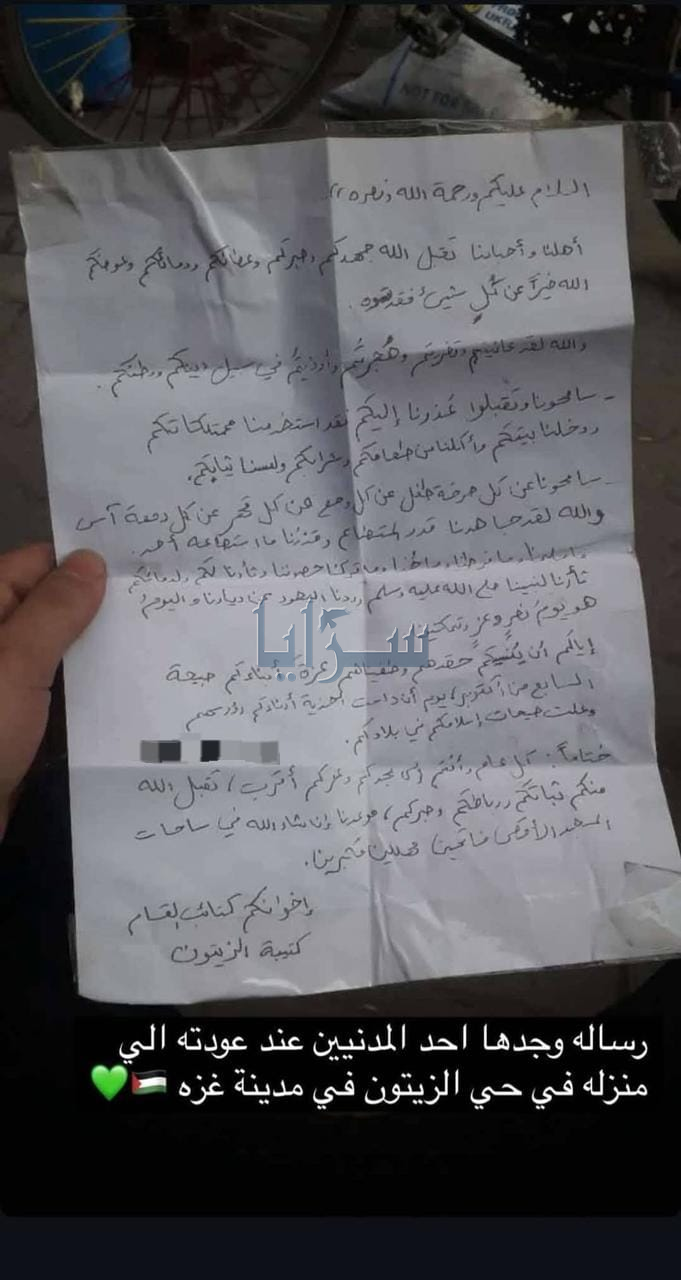 السلام عليكم ورحمة الله ونصره ،،
أهلنا وأحبابنا تقبل الله جهدكم وصبركم وعطائكم ودمائكم وعوضكم
الله خيراً عن كُلِ شيئ فقدتموه .
والله لقد عانيتم وتغربتم وهُجرتم وأوذيتم في سبيل دينكم ووطنكم .
- سامحونا وتقبلوا عُذرنا إليكم فقد استخدمنا ممتلكاتكم
ودخلنا بيتكم وأكلنا من طعامكم وشرابكم ولبسنا ثيابكم .
- سامحونا عن كل صرخة طفل عن كل وجع عن كل قهر عن كل دمعة آسى
والله لقد جاهدنا قدر المستطاع وقدمنا ما استطاعه أحد .
وما فرطنا وما تركنا حصوننا وثأرنا لكم ولدمائكم
ثأرنا لنبينا صلى الله عليه وسلم رددنا اليهود عن ديارنا واليوم
هو يومُ نصرٍ وعزٍ وتمكين
إياكم أن يُنسيكم حقدهم وطغيانهم عزة أبناءكم صبيحة
السابع من أكتوبر، يوم أن داست أحذية أبناءكم رؤوسهم
وعلت صيحات إسلامكم في بلادكم .
ختاماً : كل عام وأنتم إلى مجدكم وعزكم أقرب ، تقبل الله
منكم ثباتكم ورباطكم وصبركم ، موعدنا إن شاء الله في ساحات
المسجد الأقصى فاتحين مهللين مكبرين .
إخوانكم كتائب القسام
كتيبة الزيتون
سرايا
NOT FOR
رساله وجدها احد المدنيين عند عودته الي
منزله في حي الزيتون في مدينة غزه 🇵🇸💚